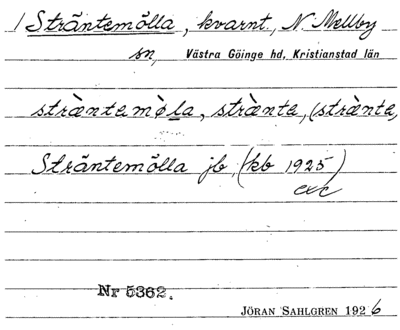 1 Sträntemölla, kvarnt., N. Mellby
sn, Västra Göinge hd, Kristianstad län
stræ̀ntemø̀la, stræ̀nta, (stræ̀nta,
Sträntemölla jb, (kb 1925)
exc
Nr 5362.
JÖRAN SAHLGREN 1926